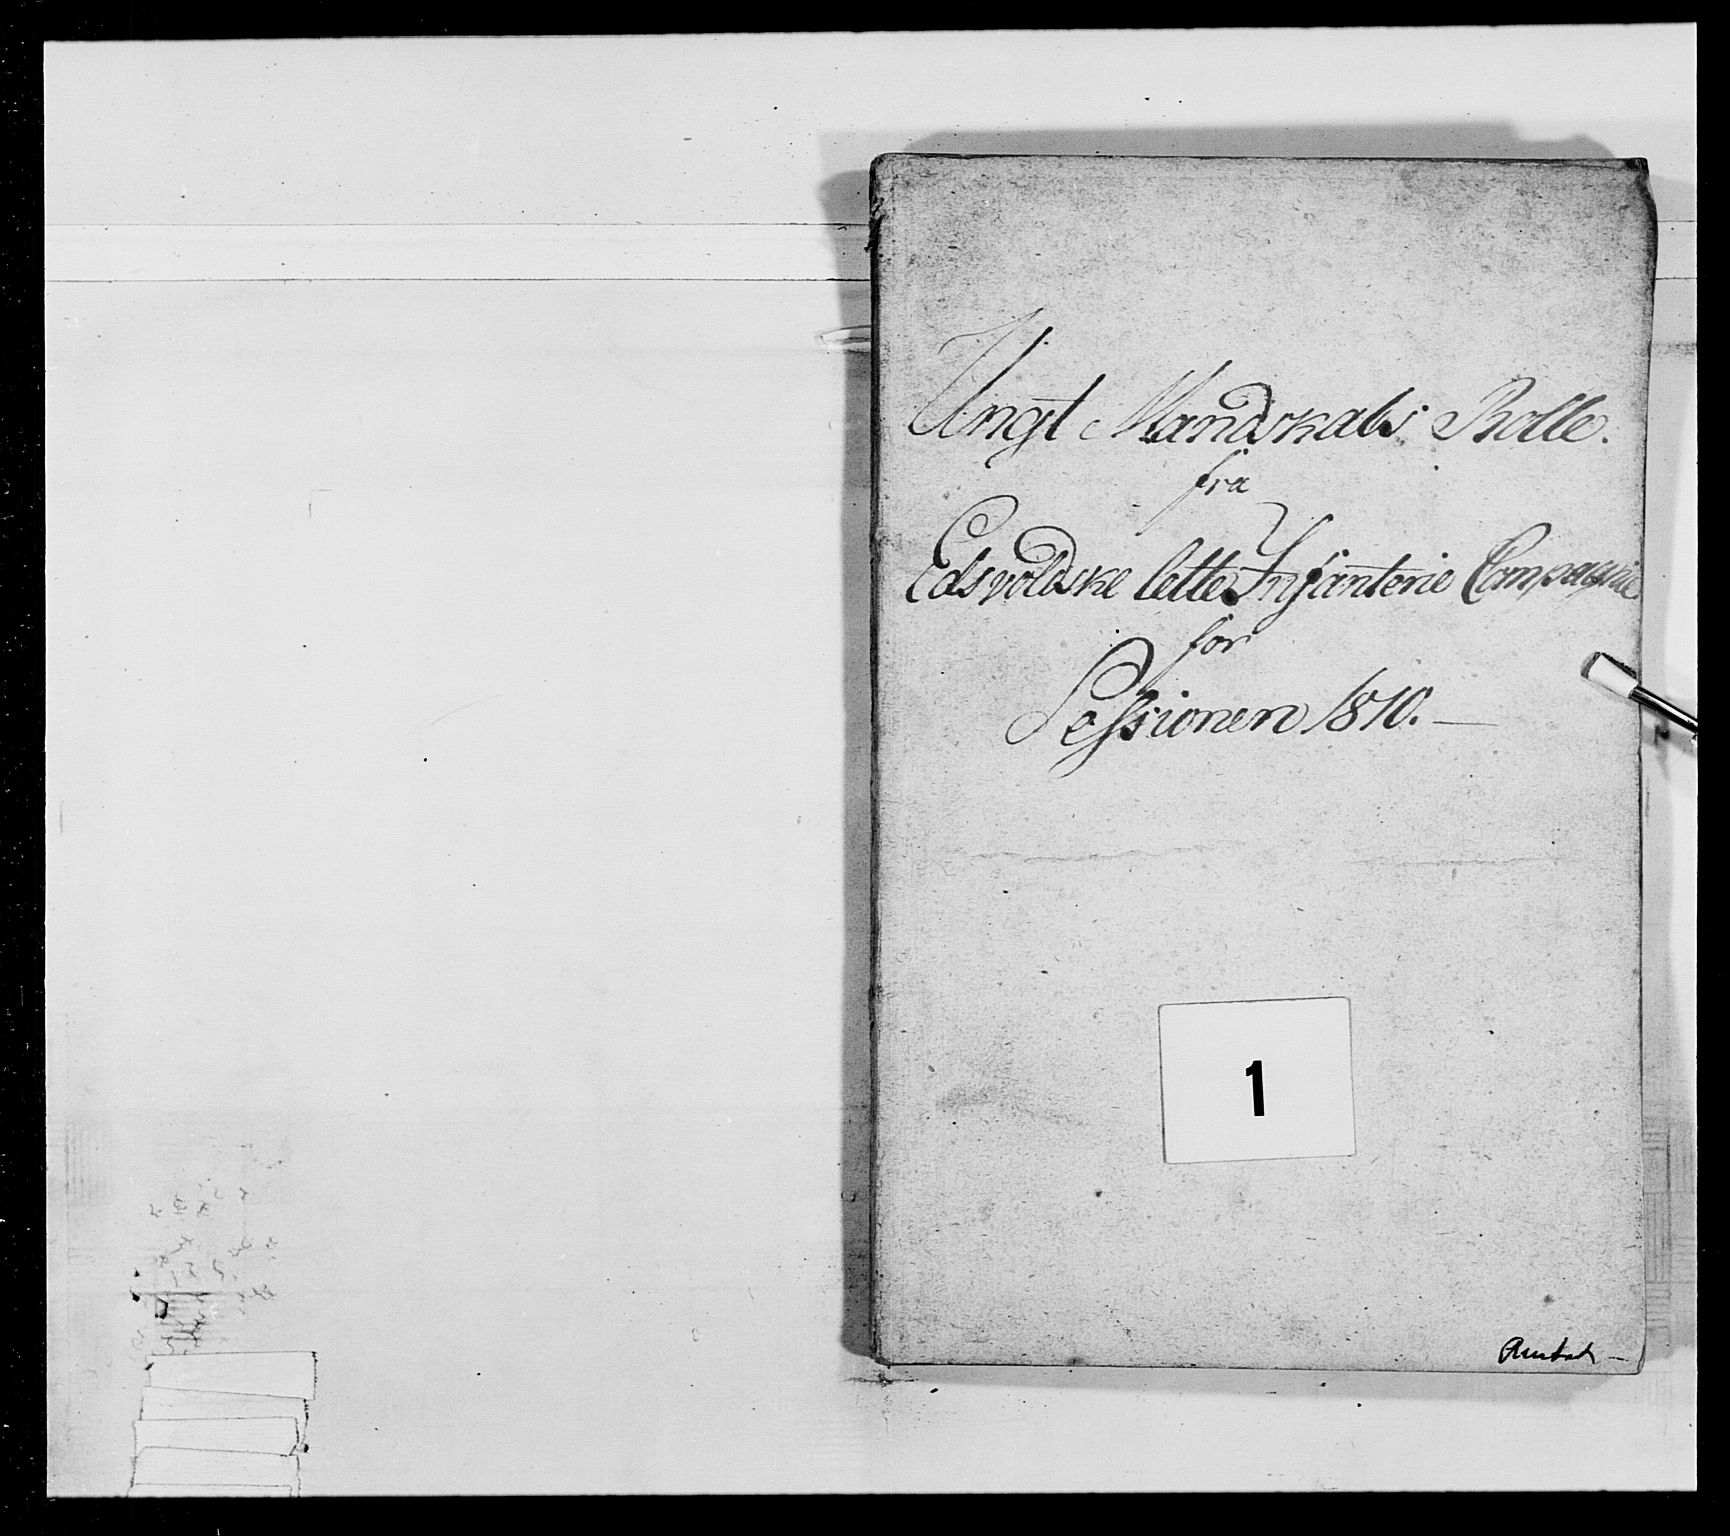 Ungt Mandskabs Rolle.
fra
Edsvoldske lette Infanterie Compagnie
for
Sessionen 1810. —
1